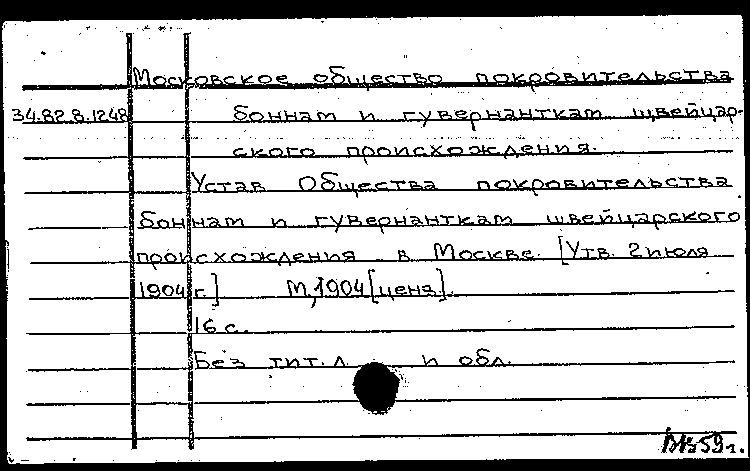 Московское общество покровительства
34.82.8.1248 боннам и гувернанткам швейцар-
ского происхождения.
Устав Общества покровительства
боннам и гувернанткам швейцарского
происхождения в Москве. [Утв. 2 июля
1904 г.] М., 1904 [цена].
16 с.
Без тит. л. и обл.
59 г.